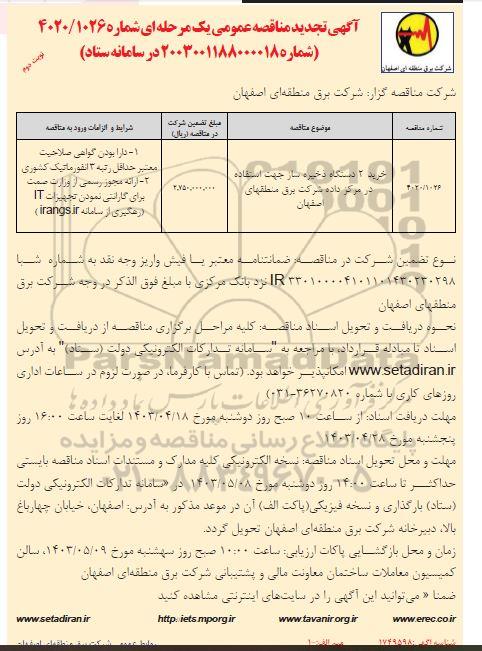 آگهی تجدید مناقصه عمومی یک مرحله ای شماره ۴۰۲۰/۱۰۲۶
(شماره ۲۰۰۳۰۰۱۱۸۸۰۰۰۰۱۸ در سامانه ستاد)
نوبت دوم
شرکت برق منطقه ای اصفهان
شرکت مناقصه گزار: شرکت برق منطقه‌ای اصفهان
شماره مناقصه
موضوع مناقصه
مبلغ تضمین شرکت در مناقصه (ریال)
شرایط و الزامات ورود به مناقصه
۴۰۲۰/۱۰۲۶
خرید ۲ دستگاه ذخیره ساز جهت استفاده
در مرکز داده شرکت برق منطقهای
اصفهان
۲,۷۵۰,۰۰۰,۰۰۰
۱- دارا بودن گواهی صلاحیت
معتبر حداقل رتبه ۳ انفورماتیک کشوری
۲- ارائه مجوز رسمی از وزارت صمت
برای گارانتی نمودن تجهیزات IT
(رهگیری از سامانه irangs.ir)
نوع تضمین شرکت در مناقصه: ضمانتنامه معتبر یا فیش واریز وجه نقد به شماره شبا
IR ۳۳۰۱۰۰۰۰۴۱۰۱۱۰۱۴۳۰۲۳۰۲۹۸ نزد بانک مرکزی با مبلغ فوق الذکر در وجه شرکت برق
منطقهای اصفهان
نحوه دریافت و تحویل اسناد مناقصه: کلیه مراحل برگزاری مناقصه از دریافت و تحویل
اسناد تا مبادله قرارداد، با مراجعه به "سامانه تدارکات الکترونیکی دولت (ستاد)" به آدرس
www.setadiran.ir امکانپذیر خواهد بود. (تماس با کارفرما، در صورت لزوم در ساعات اداری
روزهای کاری با شماره ۳۶۲۷۰۸۲۰-۰۳۱)
مهلت دریافت اسناد: از ساعت ۱۰ صبح روز دوشنبه مورخ ۱۴۰۳/۰۴/۱۸ لغایت ساعت ۱۶:۰۰ روز
پنجشنبه مورخ ۱۴۰۳/۰۴/۲۸
مهلت و محل تحویل اسناد مناقصه: نسخه الکترونیکی کلیه مدارک و مستندات اسناد مناقصه بایستی
حداکثر تا ساعت ۱۴:۰۰ روز دوشنبه مورخ ۱۴۰۳/۰۵/۰۸ در «سامانه تدارکات الکترونیکی دولت
(ستاد) بارگذاری و نسخه فیزیکی(پاکت الف) آن در موعد مذکور به آدرس: اصفهان، خیابان چهارباغ
بالا، دبیرخانه شرکت برق منطقه‌ای اصفهان تحویل گردد.
زمان و محل بازگشایی پاکات ارزیابی: ساعت ۱۰:۰۰ صبح روز سهشنبه مورخ ۱۴۰۳/۰۵/۰۹، سالن
کمیسیون معاملات ساختمان معاونت مالی و پشتیبانی شرکت برق منطقه‌ای اصفهان
ضمنا « می‌توانید این آگهی را در سایت‌های اینترنتی مشاهده کنید
www.setadiran.ir http://iets.mporg.ir www.tavanir.org.ir www.erec.co.ir
شناسه آگهی: ۱۷۴۹۵۹۸ میم الف-۱ روابط عمومی شرکت برق منطقه‌ای اصفهان